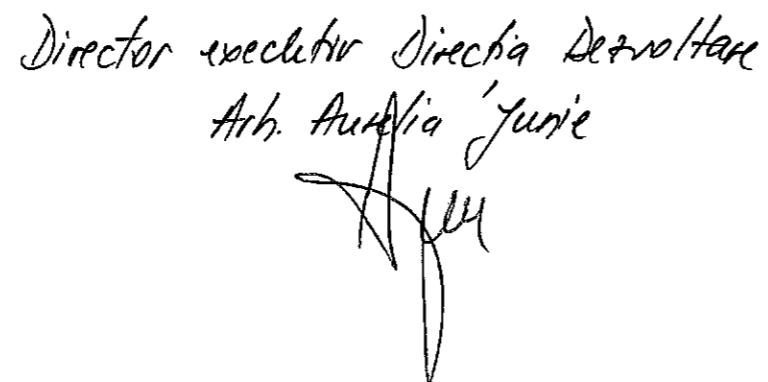 Director executiv Direcția Dezvoltare
Arh. Aurelia Junie